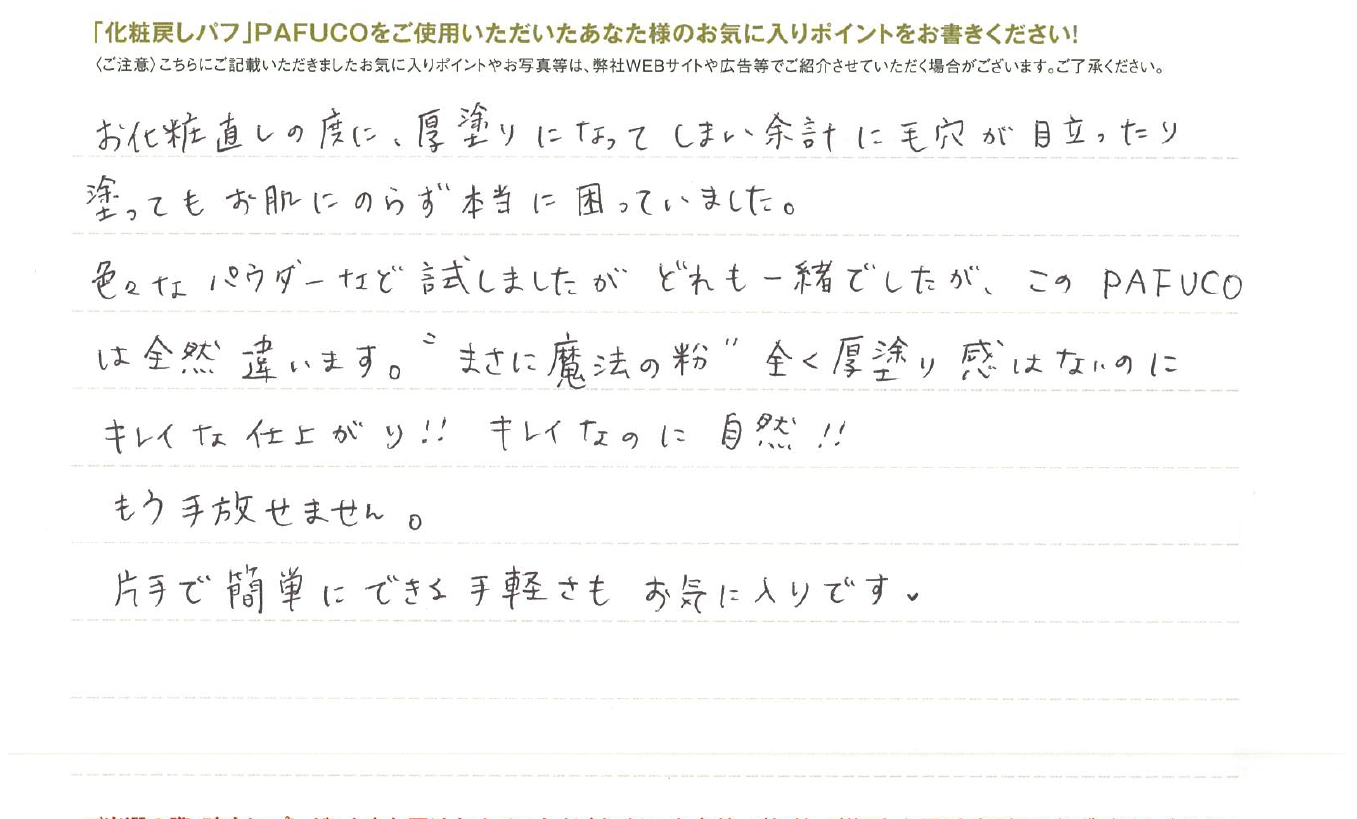 「化粧戻しパフ」PAFUCOをご使用いただいたあなた様のお気に入りポイントをお書きください!
〈ご注意〉こちらにご記載いただきましたお気に入りポイントやお写真等は、弊社WEBサイトや広告等でご紹介させていただく場合がございます。ご了承ください。
お化粧直しの度に、厚塗りになってしまい余計に毛穴が目立ったり
塗ってもお肌にのらず本当に困っていました。
色々なパウダーなど試しましたがどれも一緒でしたが、このPAFUCO
は全然違います。〝まさに魔法の粉〟全く厚塗り感はないのに
キレイな仕上がり!! キレイなのに自然!!
もう手放せません。
片手で簡単にできる手軽さもお気に入りです♥